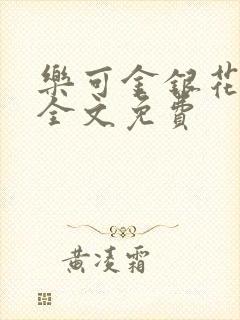 樂可金銀花
全文免費
黃凌霜